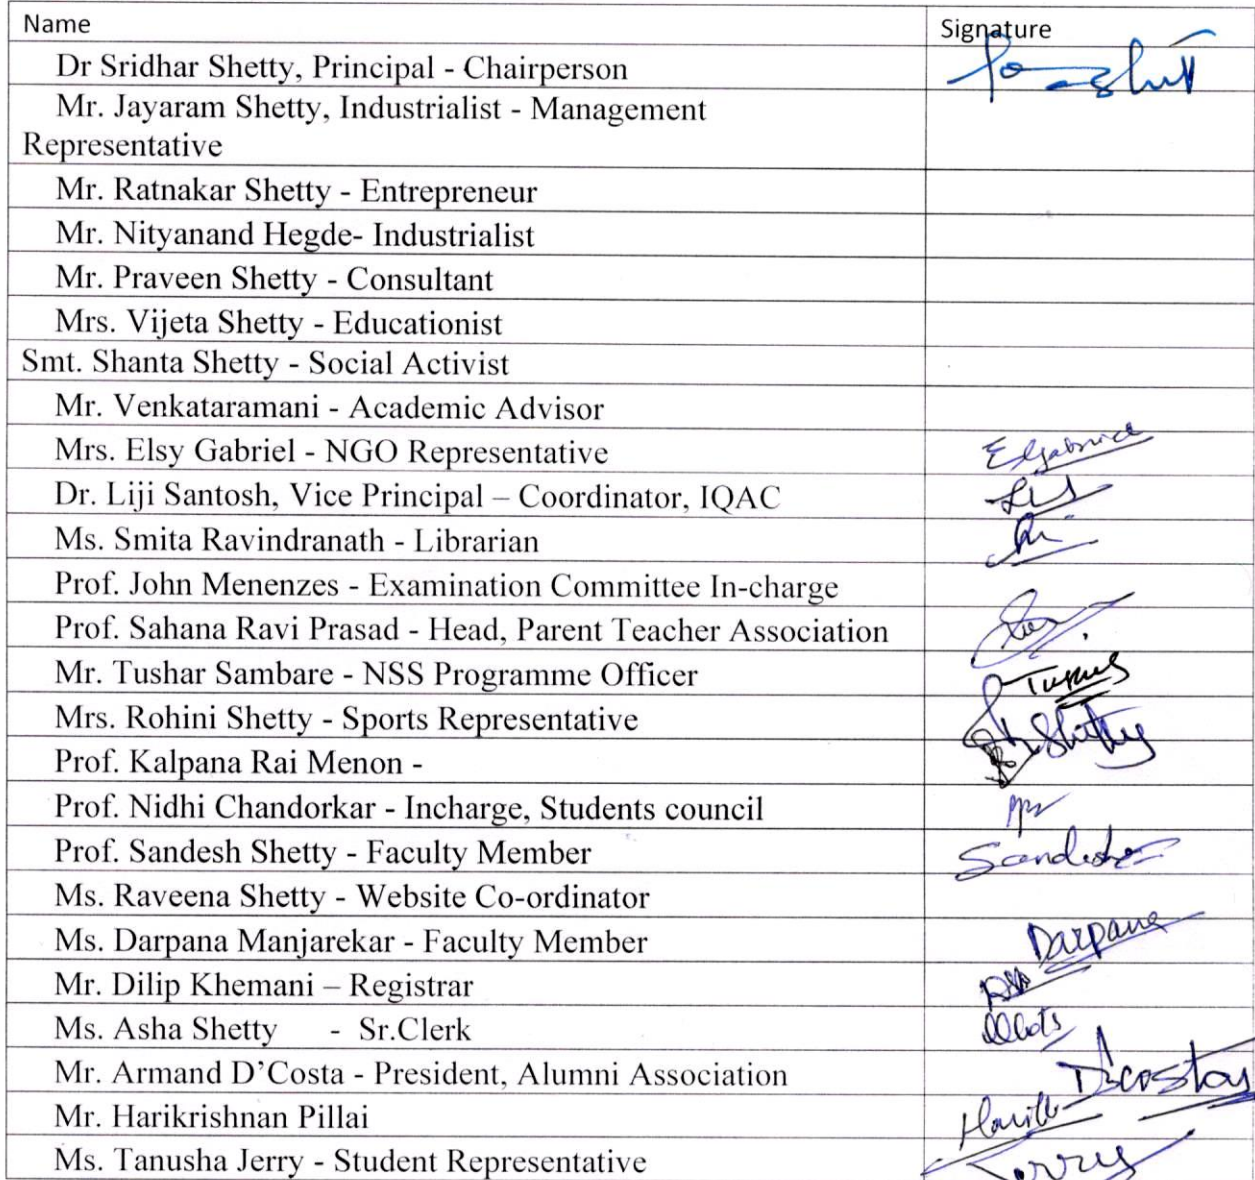 Name Signature
Dr Sridhar Shetty, Principal - Chairperson
Mr. Jayaram Shetty, Industrialist - Management
Representative
Mr. Ratnakar Shetty - Entrepreneur
Mr. Nityanand Hegde- Industrialist
Mr. Praveen Shetty - Consultant
Mrs. Vijeta Shetty - Educationist
Smt. Shanta Shetty - Social Activist
Mr. Venkataramani - Academic Advisor
Mrs. Elsy Gabriel - NGO Representative
Dr. Liji Santosh, Vice Principal – Coordinator, IQAC
Ms. Smita Ravindranath - Librarian
Prof. John Menenzes - Examination Committee In-charge
Prof. Sahana Ravi Prasad - Head, Parent Teacher Association
Mr. Tushar Sambare - NSS Programme Officer
Mrs. Rohini Shetty - Sports Representative Shetty
Prof. Kalpana Rai Menon -
Prof. Nidhi Chandorkar - Incharge, Students council
Prof. Sandesh Shetty - Faculty Member Sandesh
Ms. Raveena Shetty - Website Co-ordinator
Ms. Darpana Manjarekar - Faculty Member Darpana
Mr. Dilip Khemani – Registrar
Ms. Asha Shetty - Sr.Clerk
Mr. Armand D’Costa - President, Alumni Association
Mr. Harikrishnan Pillai
Ms. Tanusha Jerry - Student Representative Jerry